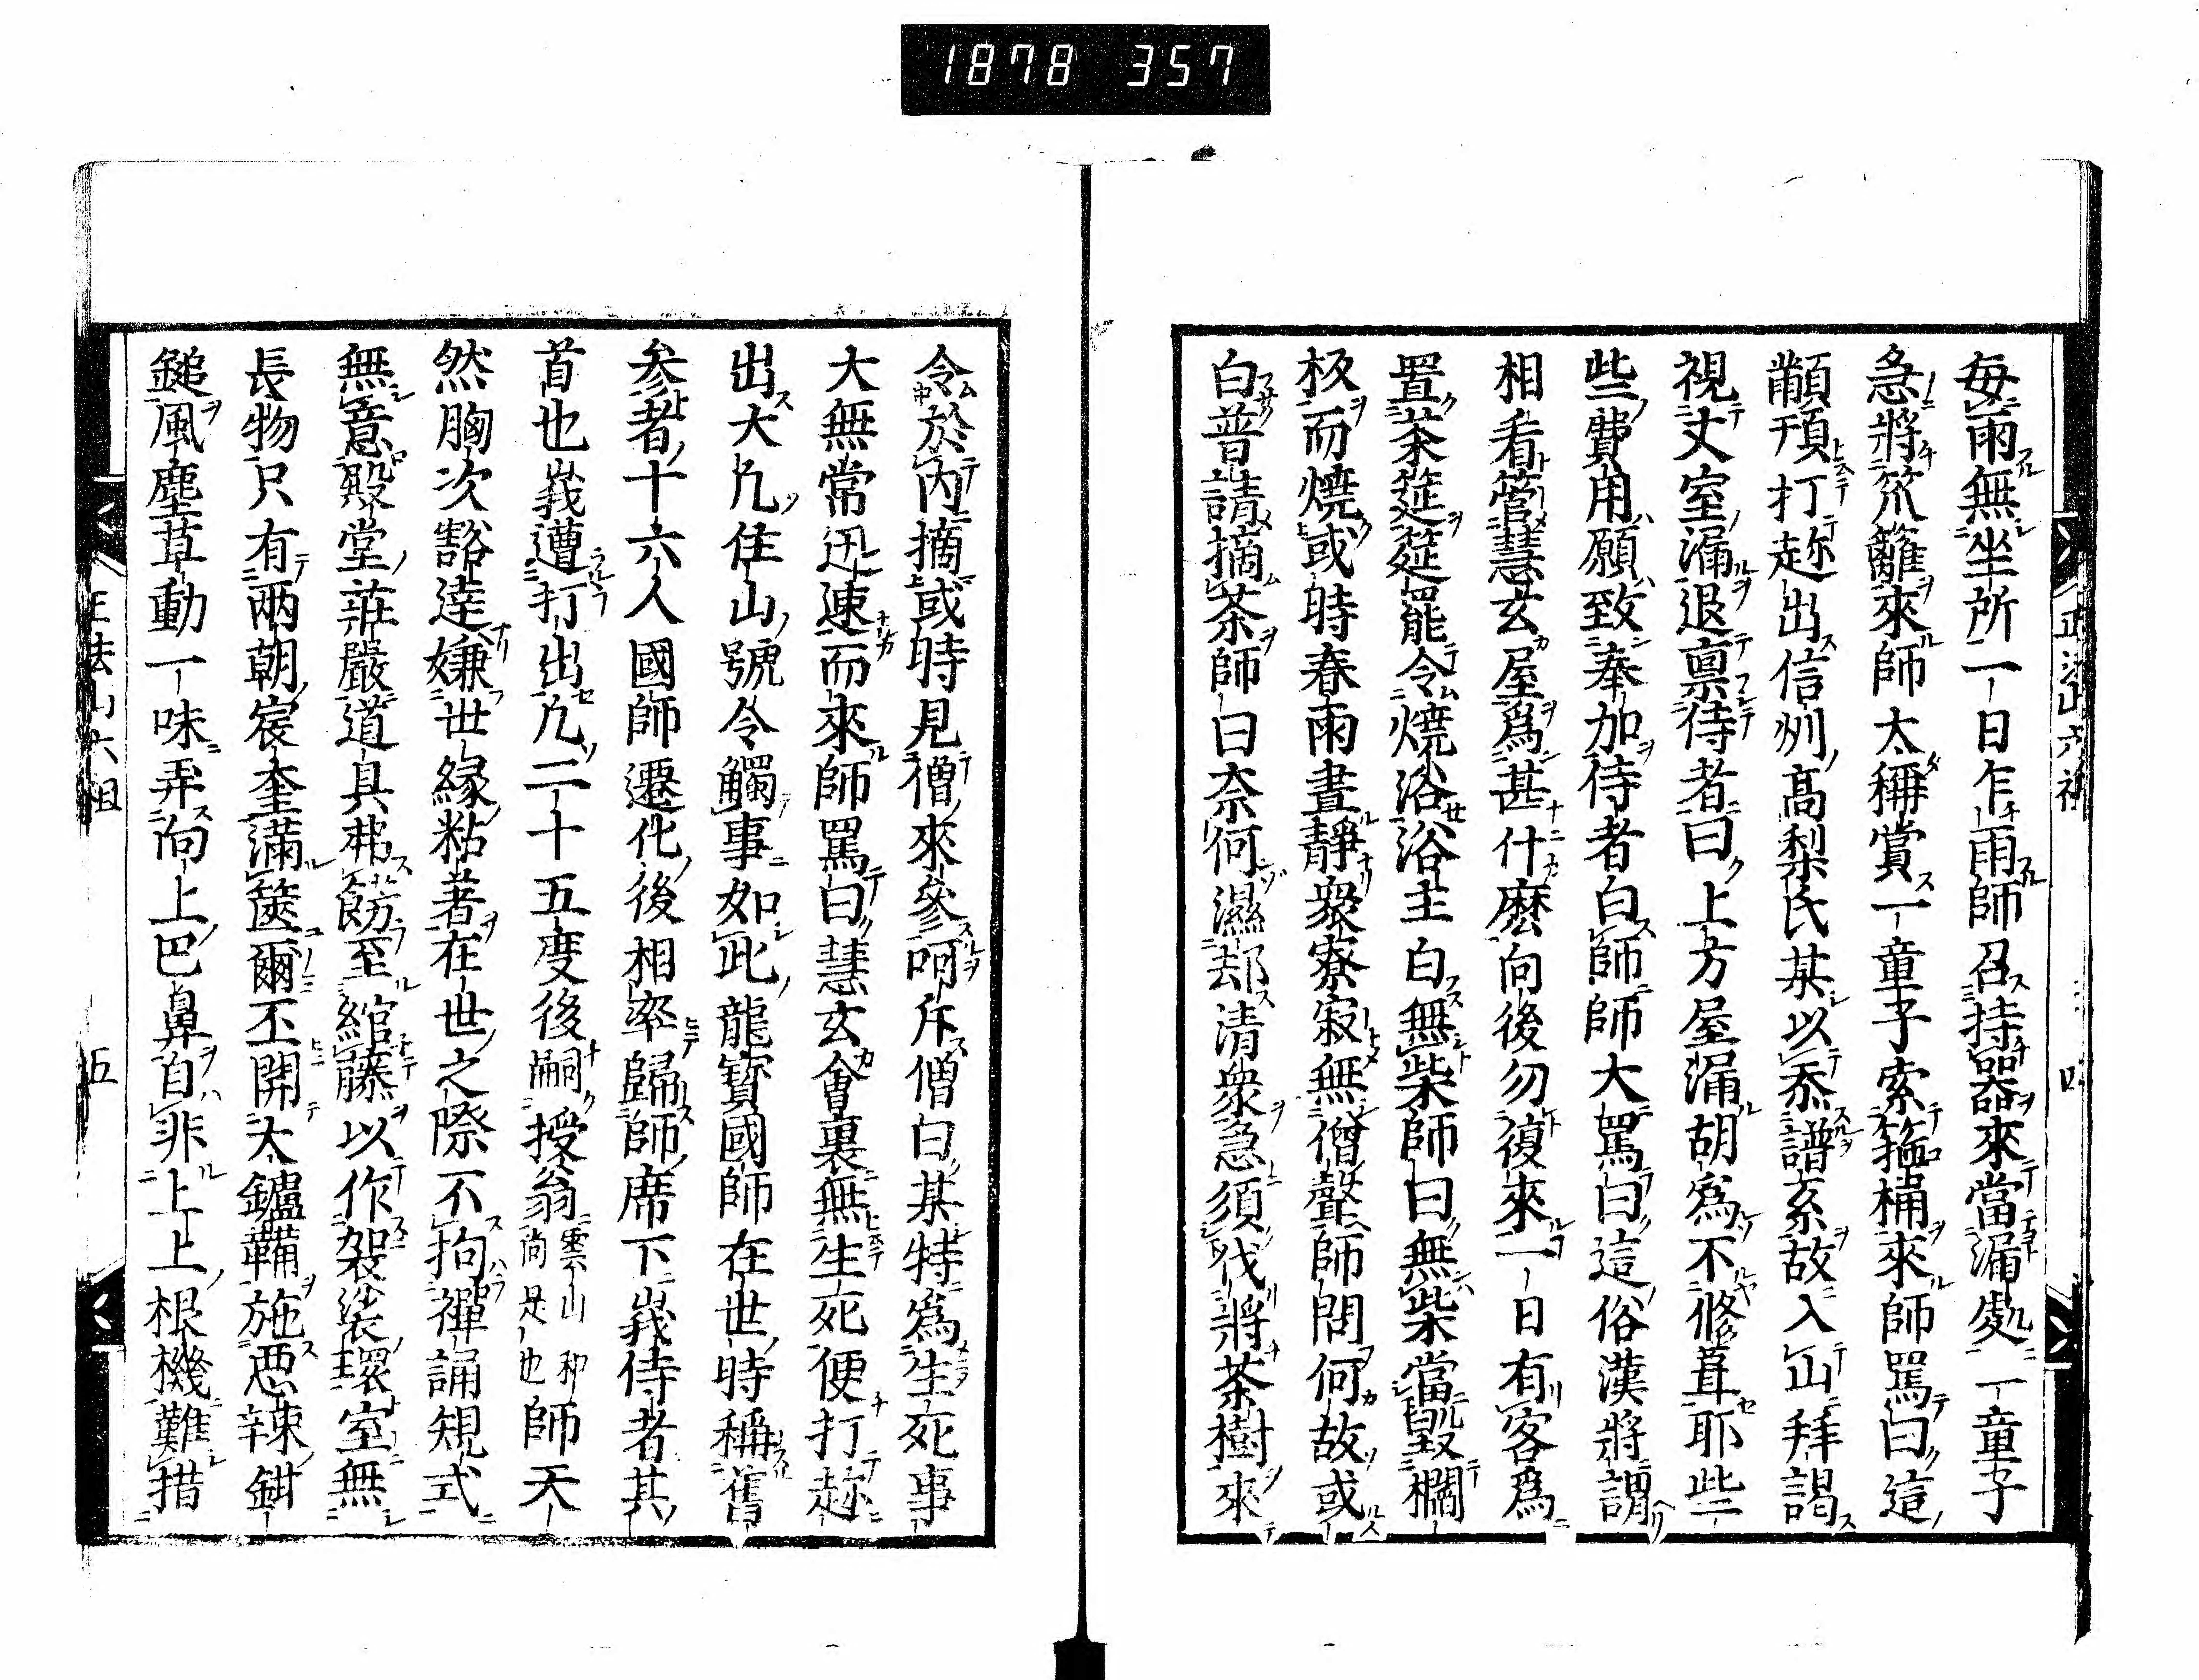 1878 357
毎雨無坐所一日乍雨師召持器來當漏處一童子
急將笊籬來師太稱賞一童子索箍桶來師罵曰這
顢頇打趂出信州高梨氏某以忝譜系故入山拜謁
視丈室漏退稟侍者曰上方屋漏胡爲不修葺耶些
些費用願致奉加侍者白師師大罵曰這俗漢將謂
相看管慧玄屋爲甚什麽向後勿復來一日有客爲
置茶筵筵罷令燒浴浴主白無柴師曰無柴當毀欄
板而燒或時春雨晝靜衆寮寂無僧聲師問何故或
白普請摘茶師曰奈何濕却清衆急須伐將茶樹來
令於内摘或時見僧來參呵斥僧曰某特爲生死事
大無常迅速而來師罵曰慧玄會裏無生死便打趂
出大凢住山號令觸事如此龍寳國師在世時稱舊
参者十六人國師遷化後相率歸師席下峩侍者其
首也峩遭打出凢二十五度後嗣授翁雲山和尚是也師天
然胸次豁達嫌世緣粘著在世之際不拘禪誦規式
無意殿堂莊嚴道具弗餝至綰藤以作袈裟環室無
長物只有兩朝宸奎滿篋爾丕開太鑪鞴施惡辣鉗
鎚風塵草動一味弄向上巴鼻自非上上根機難措
正法山六祖 四
正法山六祖 五